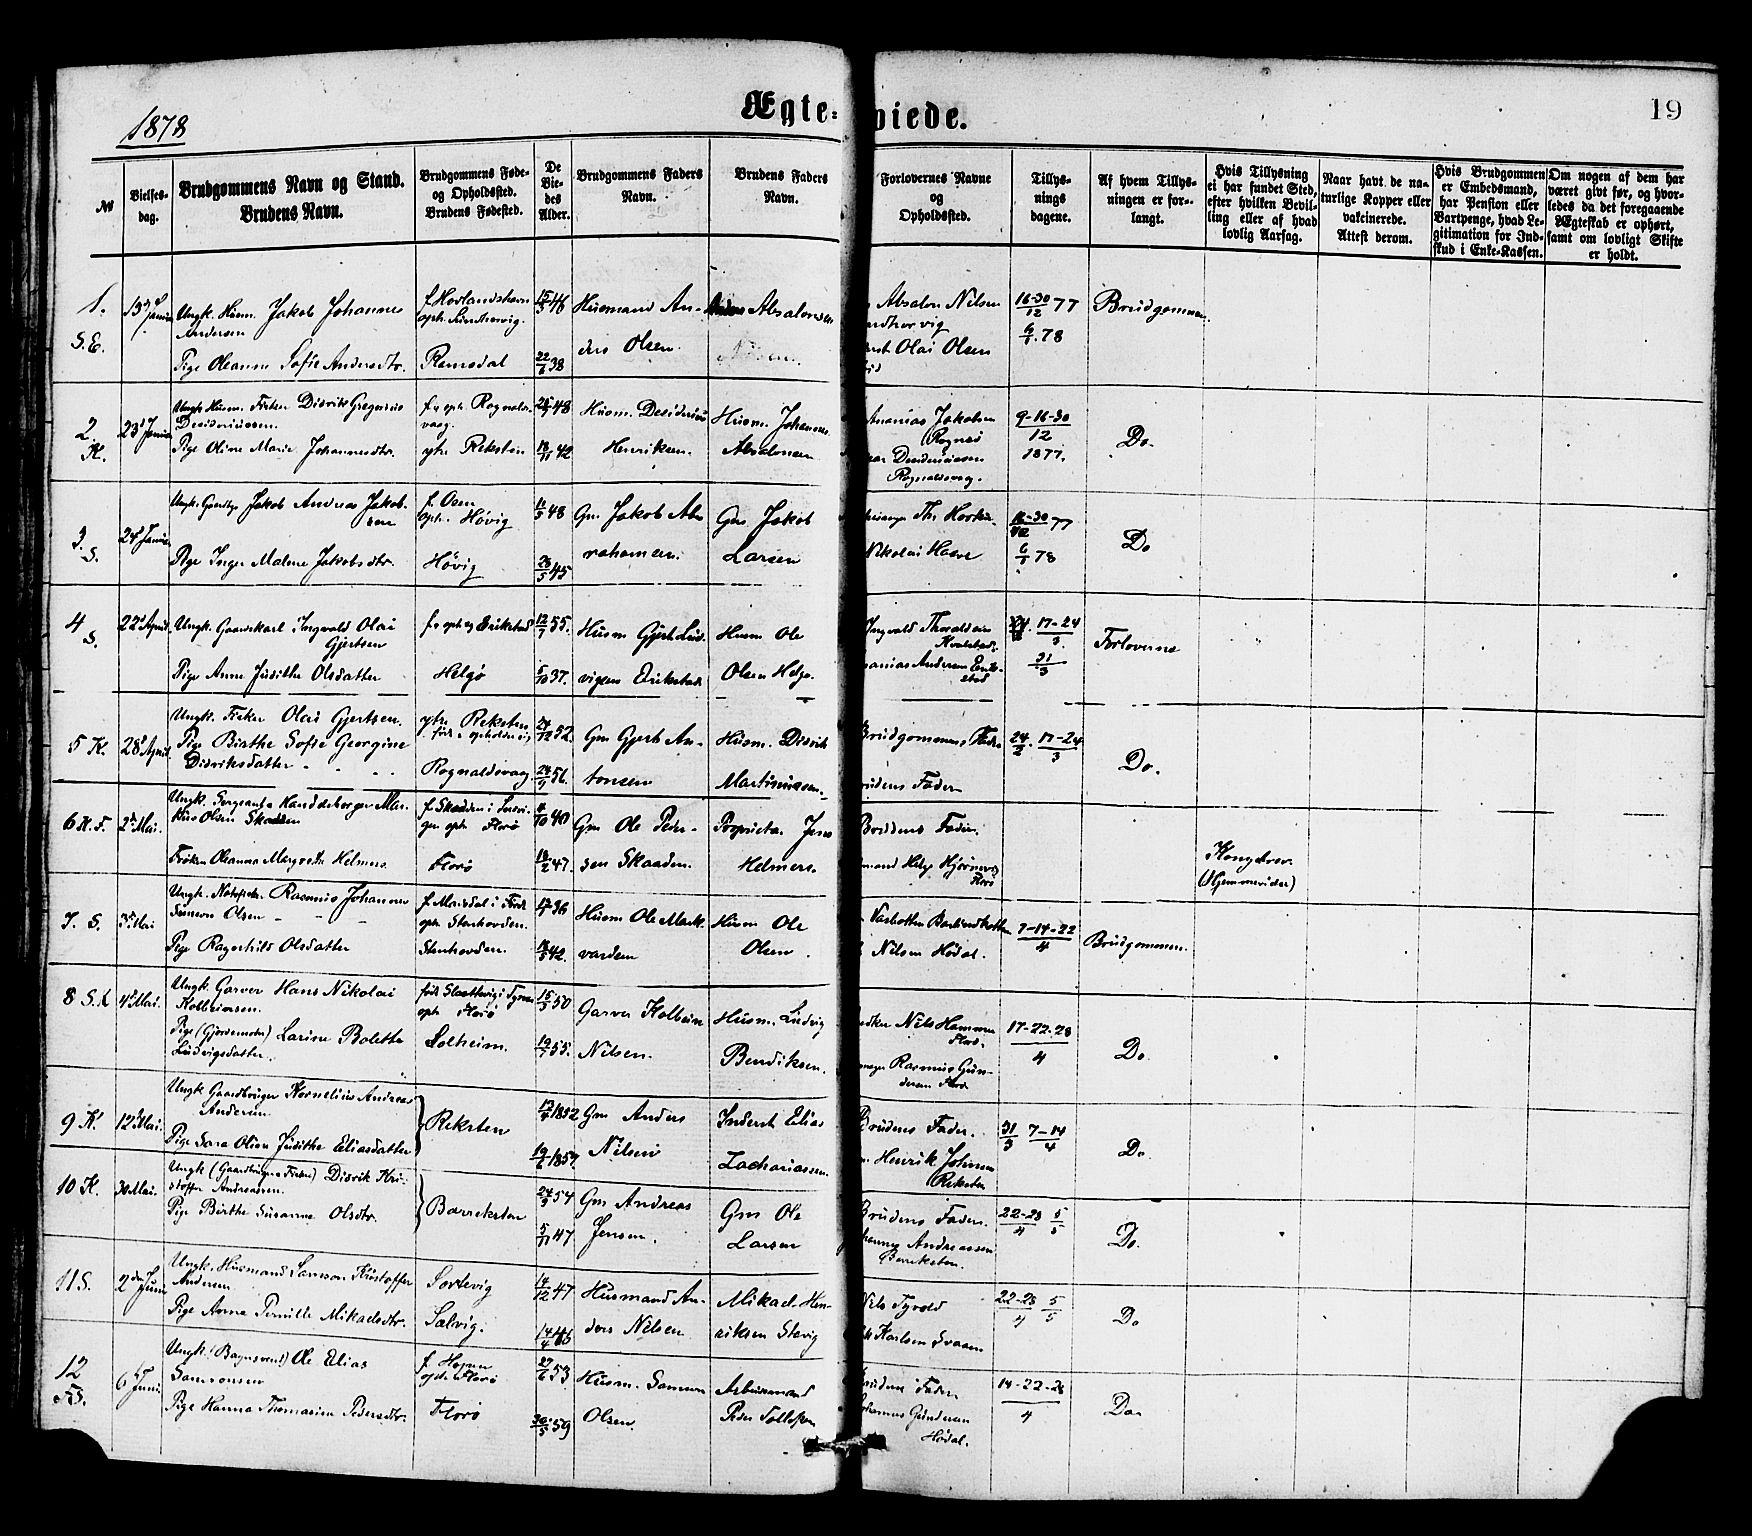 1878
Ægte-
viede.
19
No
Vielses-
dag.
Brudgommens Navn og Stand.
Brudens Navn.
Brudgommens Føde-
og Opholdssted.
Brudens Fødested.
De
Vie-
des
Alder.
Brudgommens Faders
Navn.
Brudens Faders
Navn.
Forlovernes Navne
og
Opholdssted.
Tillys-
nings
dagene.
Af hvem Tillys-
ningen er for-
langt.
Hvis Tillysning
ei har fundet Sted,
efter hvilken Bevil-
ling eller af hvad
lovlig Aarsag.
Naar havt de na-
turlige Kopper eller
vakcinerede.
Attest derom.
Hvis Brudgommen
er Embedsmand,
har Pension eller
Vartpenge, hvad Le-
gitimation for Ind-
skud i Enke-Kassen.
Om nogen af dem har
været givt før, og hvor-
ledes da det foregaaende
Ægteskab er ophørt,
samt om lovligt Skifte
er holdt.
1.
S.E.
Ungk. Husm. Jakob Johannes
Andersen
Pige Oleanna Sofie Andersdtr.
Ramsdal
15/3 46
22/6 38
Husmand An-
ders Olsen.
Absalonsen
Absalon Nilsen
Olai Olsen
16-30/12 77
6/1 78
Brudgommen
2.
K.
Ungk. Husm. Fisker Didrik Gregorius
Pige Oline Marie Johannesdtr.
ytre Reksten
Husm. Desiderius
Henriksen.
Husm. Johannes
Absalonsen
Ananias Jakobsen
Rognaldsvaag.
9-16-30
12
1877.
Do.
3.
S.
Jakob Andreas Jakob-
sen
Pige Inger Malene Jakobsdtr.
oph. Høvig
Høvig
11/3 48
Gm Jakob Abra-
hamsen.
Gm Jakob
Larsen
Nikolai Hasve
16-30/12 77
6/1 78
Do
4
S.
22 April.
Ungk. Gaardskarl Ingvald Olai
Gjertsen
Pige Anne Judithe Olsdatter
f. oph og Erikstad
Helgø
12/7 55.
5/10 37.
Husm Gjert Lud-
vigsen Erikstad
Husm Ole
Olsen Helgø.
Ingvald Thoraldsen
Ananias Andersen Erik-
stad
17-24
3
31/3
Forloverne
5 K.
28 April
Ungk. Fisker Olai Gjertsen.
Pige Birthe Sofie Georgine
Didriksdatter
ytre Reksten
Rognaldsvaag
24/12 52.
Gm Gjert An-
tonsen
Husm. Didrik
Martinussen.
Brudgommens Fader
Brudens Fader
24/2. 17-24/3
Do.
6 K.F.
2 Mai.
Ungk. Sergeant & Handelsborger Mar-
kus Olsen Skaaden
Frøken Oleanna Margrethe Helmers.
Florø
Gm Ole Peder-
sen Skaaden.
Proprietær Jens
Helmers.
Brudens Fader.
Florø
Kongebrev.
(Hjemmevielse)
7. S.
3 Mai
Rasmus Johannes
Samson Olsen
Pige Ragnhild Olsdatter
oph. Stenhovden.
Stenhovden.
Husm Ole Mark-
vardsen
Husm Ole
Olsen
Nilsen Hødal.
7-14-22
4
Brudgommen.
8 S.K
4 Mai.
Ungk. Garver Hans Nikolai
Kolbeinsen.
Pige (Gjordemoder) Larine Bolette
Ludvigsdatter.
oph. Florø
Solheim.
15/3 50
19/7 55.
Garver Kolbein
Nilsen.
Husm. Ludvig
Bendiksen.
Nils Hammer
Florø.
Rasmus Gun-
dersen Florø
17-22-28
4
Do.
9 K.
12 Mai.
Ungk Gaardbruger Kornelius Andreas
Andersen
Pige Sara Olina Judithe Eliasdatter
Reksten
1852
1857
Gm Anders
Nilsen
Inderst Elias
Zachariassen
Brudens Fader.
Henrik Johnsen
Reksten
31/3 7-14/4
Do.
10 K.
Ungk (Gaardbruger & Fisker) Didrik Kri-
stoffer Andreassen.
Pige Birthe Susanne Olsdtr.
Barrekstan
54
5/11 47
Gm Andreas
Jensen.
Gm Ole
Larsen
Brudens Fader.
Johannes Andreassen
Barrekstan.
22-28/4 5/5
Do.
11 S.
2den Juni
Ungk. Husmand Samson Kristoffer
Andersen
Pige Anna Pernille Mikaelsdtr.
Sortevig
Salvig.
14/12 47
14/4 46
Husmand An-
ders Nilsen
Mikael Hen-
riksen Stavig
Karlsen Svaan
22-28/4 5/5
Do
12
F.S.
6 Juni
Ole Elias
Samsonsen
Pige Hanna Thomasine Pedersdtr.
oph. Florø
Florø
27/6 53
30/5 59
Husm. Samson
Olsen.
Arbeidsmand
Peder Tollefsen
Brudens Fader
Johannes Gundersen
Hødal.
14-22-28
4
Do.